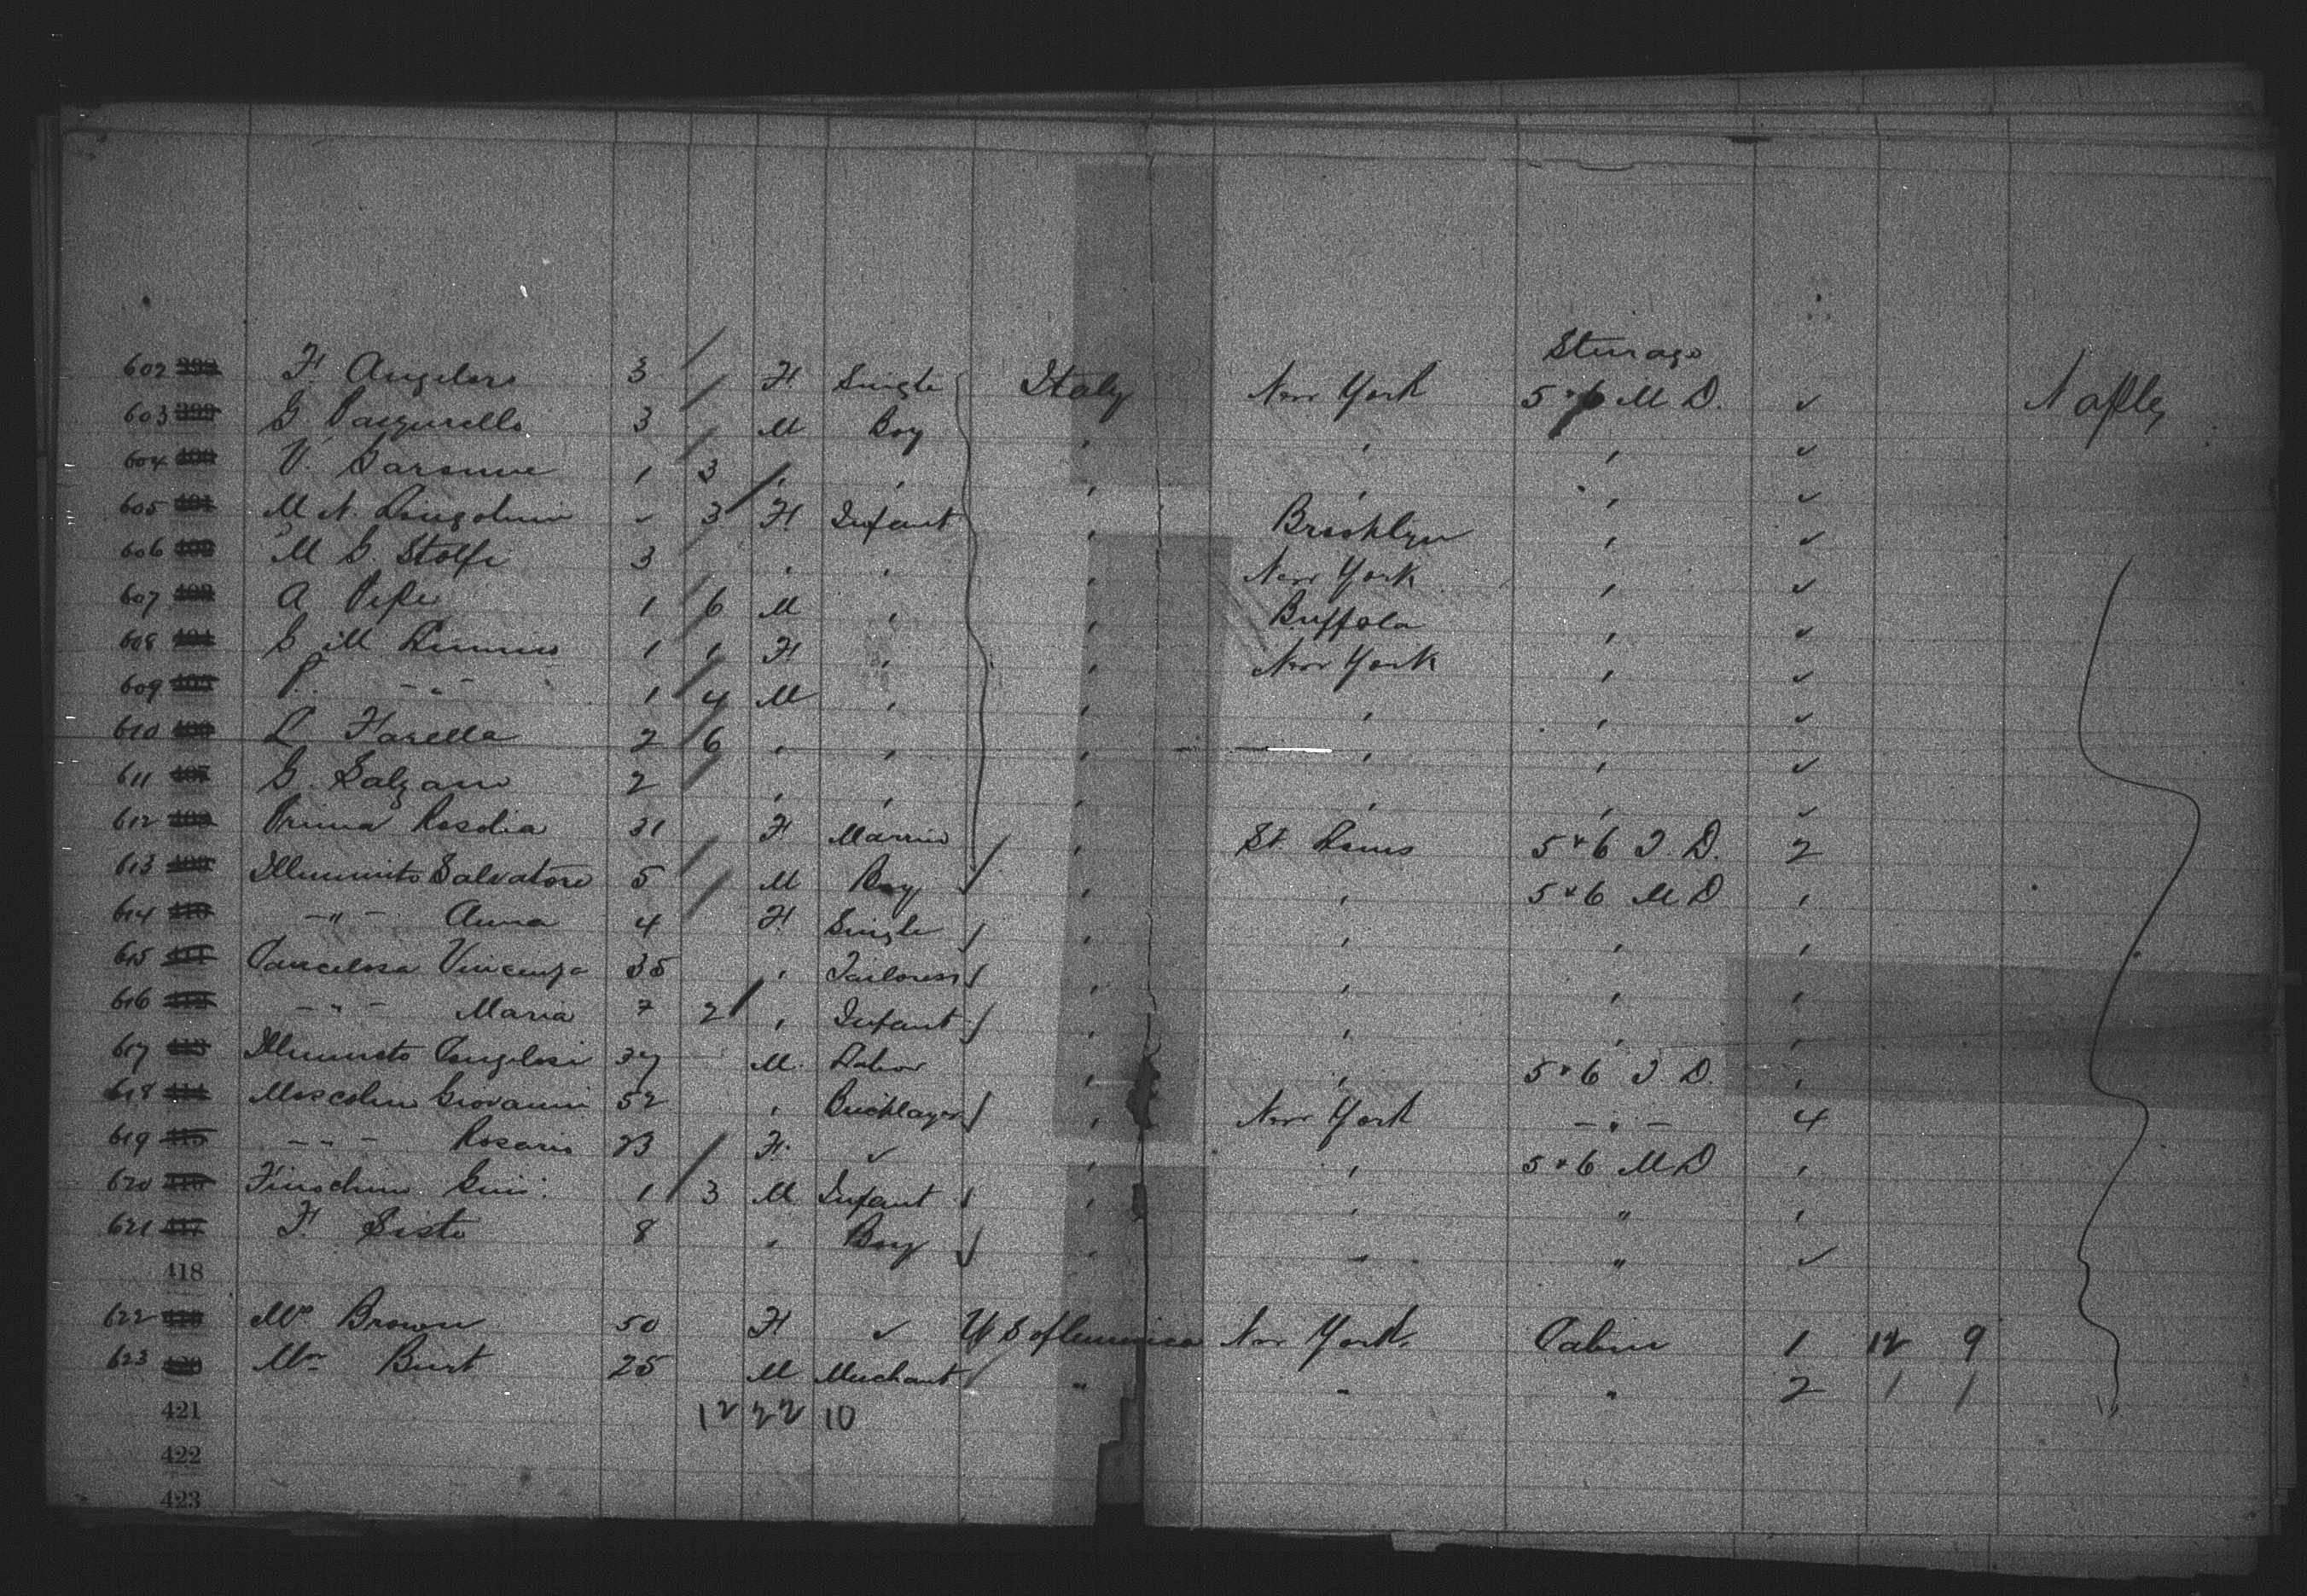 Sterage
602 398 F. Angelere 3 F. Single Italy New York 5 & 6 M D. ✓ Naples
603 399 G. Pasqurello 3 M Boy " " " ✓
604 400 V. 1 3 " " " " " ✓
605 401 M N. ✓ 3 F Infant " Brooklyn " ✓
606 402 M G. Stolfi 3 " " " New York " ✓
607 403 A Pepe 1 6 M " " Buffalo " ✓
608 404 G M 1 1 F " " New York " ✓
609 405 P. -"- 1 4 M " " " " ✓
610 406 L Farella 2 6 " " " " " ✓
611 407 G. Salzano 2 " " " " " ✓
612 408 Prima Rosolia 31 F Married " St. Louis 5 & 6 I. D. 2
613 409 Illuminito Salvatore 5 M Boy " " 5 & 6 M D "
614 410 -"- Anna 4 F Single " " " "
615 411 Vincenza 35 " Tailoress " " " "
616 412 -"- Maria 7 2 " Infant " " " "
617 413 37 M. Labor " " 5 & 6 I. D. "
618 414 Moscolino Giovanni 52 " Bricklayer " New York -"- 4
619 415 -"- Rosario 23 F. ✓ " " 5 & 6 M D "
620 416 1 3 M Infant " " " "
621 417 F. Sisto 8 " Boy " " " ✓
418
622 419 Mrs Brown 50 F ✓ U S of America New York. Cabin 1 12 9
623 420 Mr Burt 25 M Merchant " " " 2 1 1
421 12 22 10
422
423